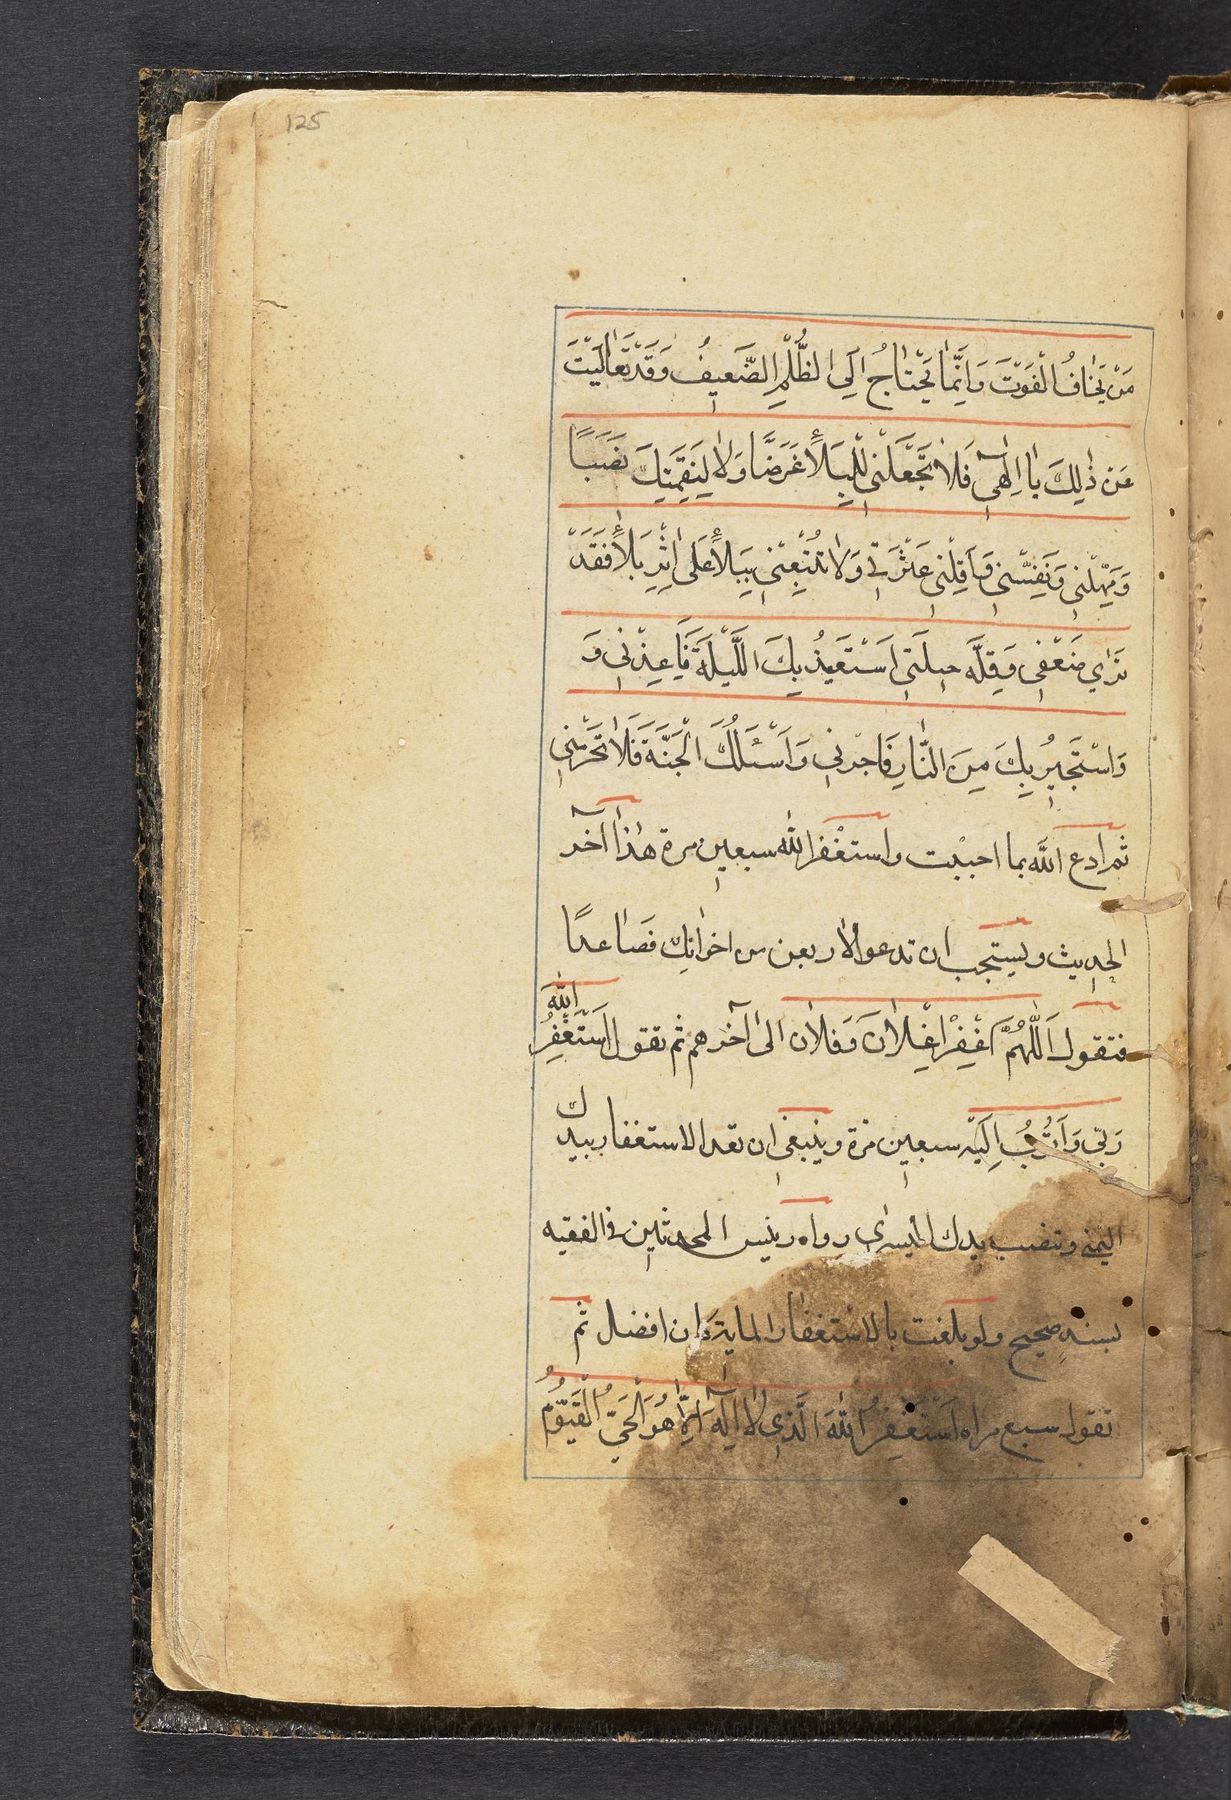 125
مَنْ يَخافُ الْفَوْتَ وَاِنَّما يَحْتاجُ اِلَى الظُّلْمِ الضَّعيفُ وَقَدْ تَعالَيْتَ
عَنْ ذٰلِكَ يا اِلٰهي فَلا تَجْعَلْني لِلْبَلاءِ غَرَضًا وَلا لِنَقِمَتِكَ نَصَبًا
وَمَهِّلْني وَنَفِّسْني وَاَقِلْني عَثْرَتي وَلا تُتْبِعْني بِبَلاءٍ عَلى اِثْرِ بَلاءٍ فَقَدْ
تَرٰي ضَعْفي وَقِلَّةَ حيلَتي اَسْتَعيذُ بِكَ اللَّيْلَةَ فَاَعِذْني وَ
وَاَسْتَجيرُ بِكَ مِنَ النّارِ فَاَجِرْني وَاَسْئَلُكَ الْجَنَّةَ فَلا تَحْرِمْني
ثم ادع اللّه بما احببت واستغفر اللّه سبعين مرة هذا آخر
الحديث ويستحب ان تدعو لاربعين من اخوانك فصاعدًا
فتقول اَللّٰهُمَّ اغْفِرْ لِفُلانَ وَفلان الى آخرهم ثم تقول اَسْتَغْفِرُ اللّٰهَ
رَبّي وَاَتُوبُ اِلَيْهِ سبعين مرة وينبغي ان تعد الاستغفار بيدك
اليمنى وتنصب يدك اليسرى رواه رئيس المحدثين في الفقيه
بسندٍ صحيح ولو بلغت بالاستغفار الماية كان افضل ثم
تقول سبع مراه اَسْتَغْفِرُ اللّٰهَ الَّذي لا اِلٰهَ اِلّا هُوَ الْحَيُّ الْقَيُّومُ